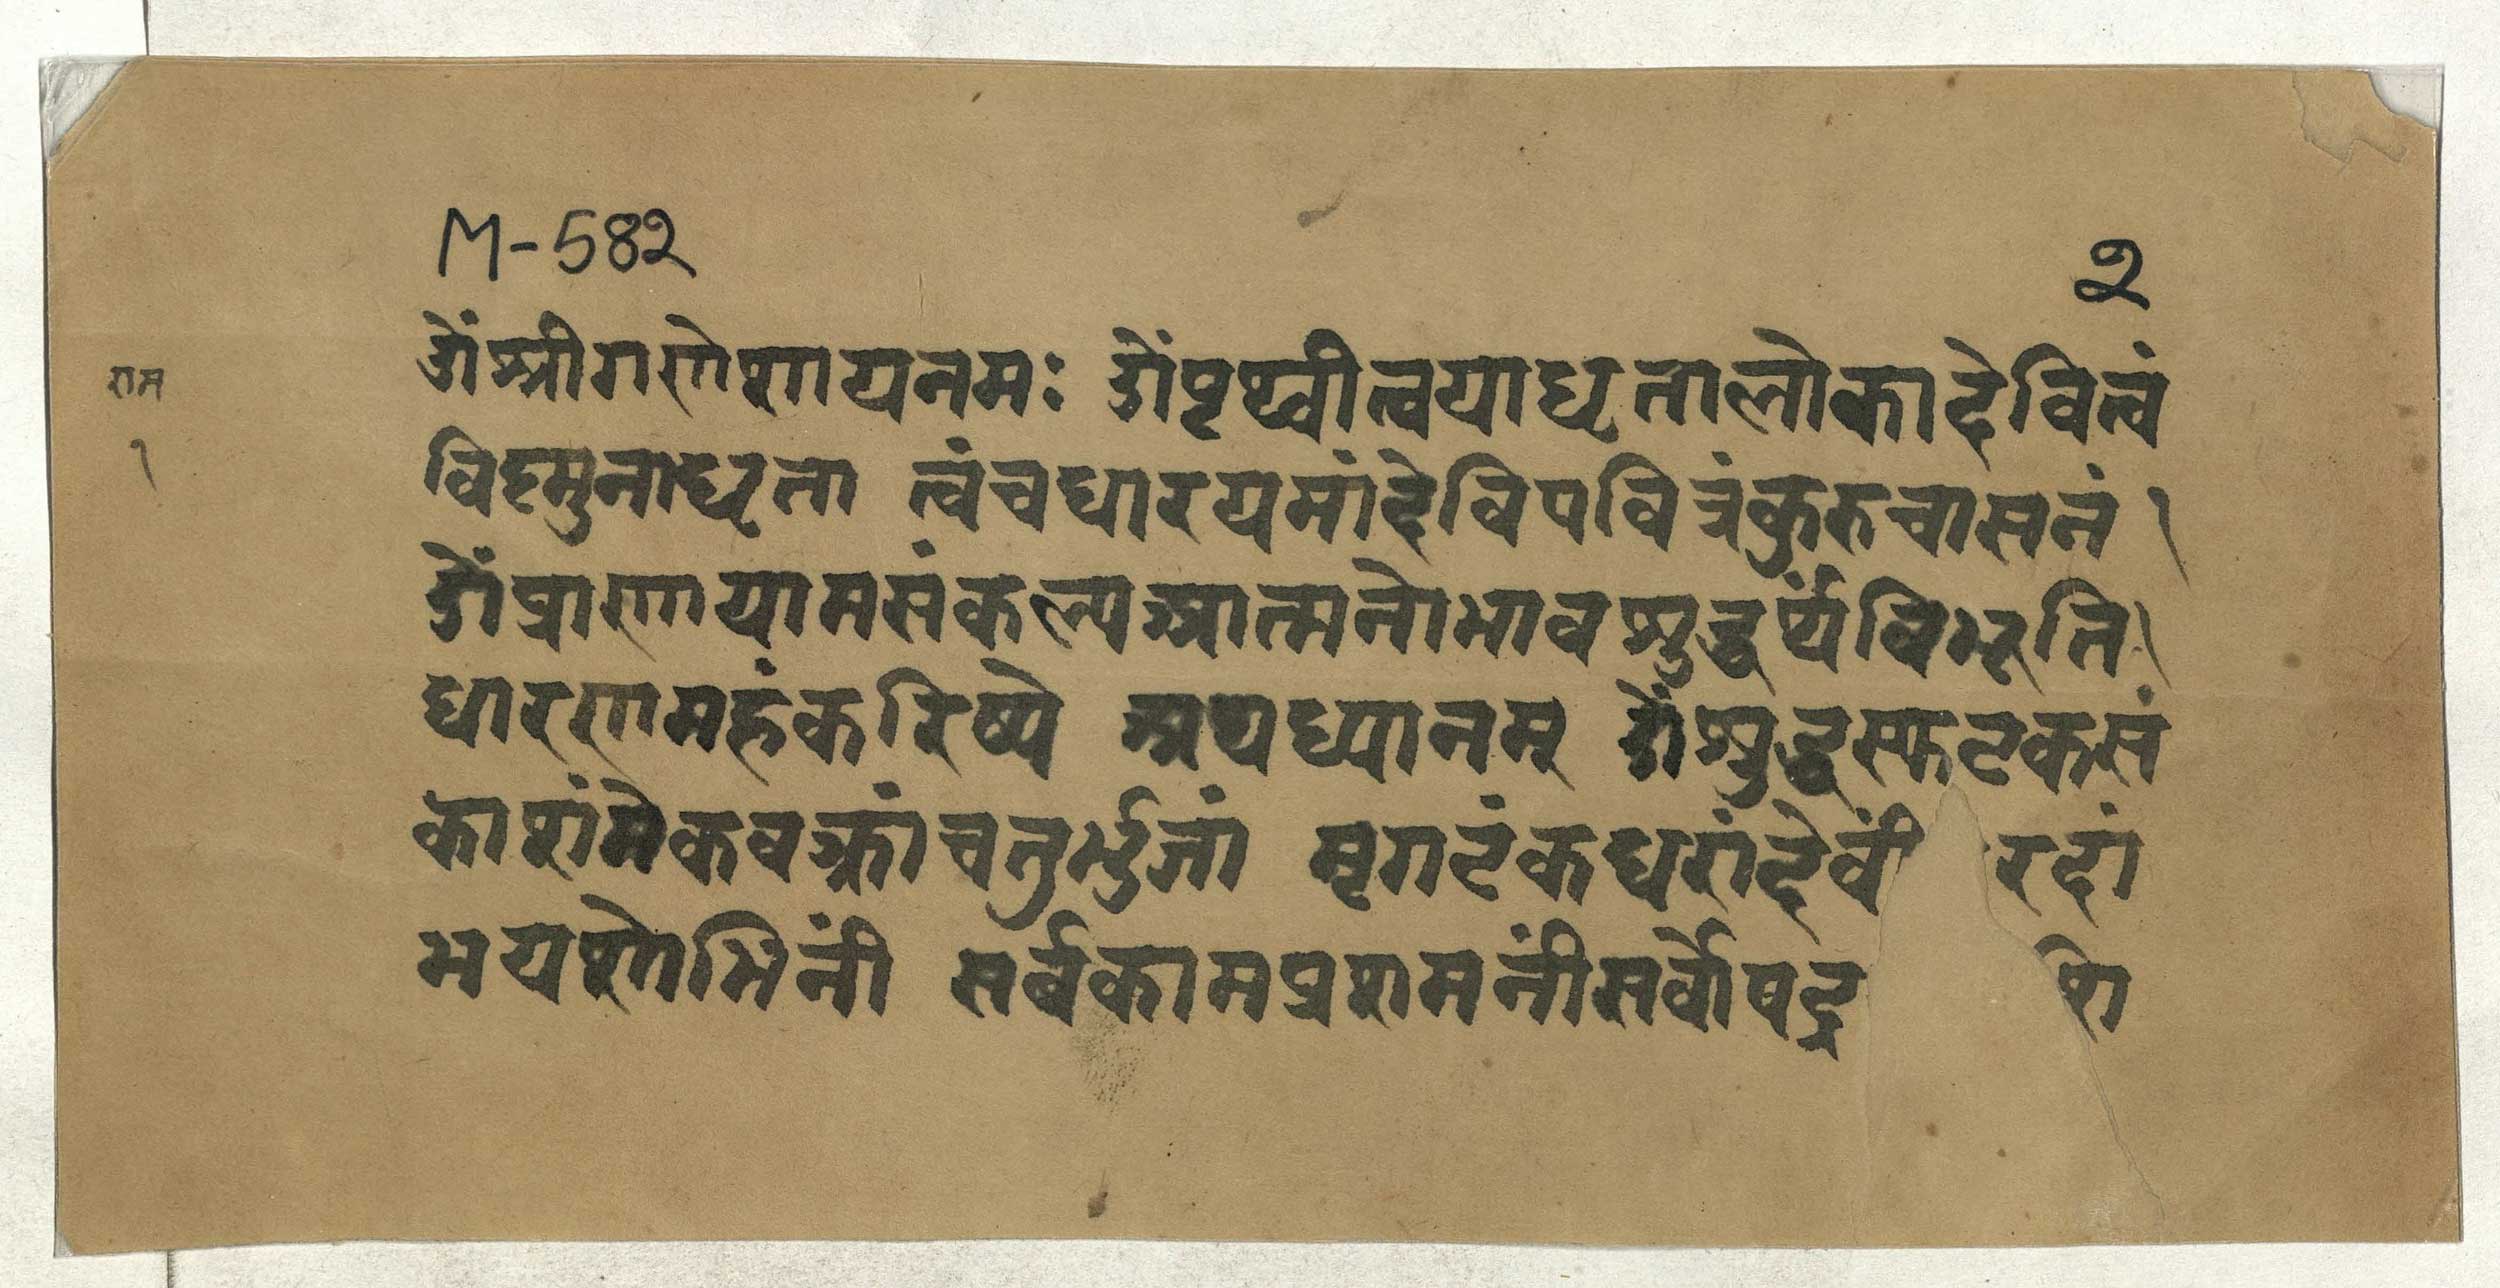 M-582
२
ॐश्रीगणेशायनमः ॐपृथ्वीत्वयाधृतालोकादेवित्वं
राम
१
विष्मुनाधृता त्वंचधारयमांदेविपवित्रंकुरुचासनं
ॐप्राणायामसंकल्पआत्मनोभावशुद्ध्यर्थविभूति
धारणमहंकरिष्ये अथध्यानम् ॐशुद्धस्फटकसं
काशांमेकवक्त्रांचतुर्भुजां मृगटंकधरांदेवीं रदां
भयशोभिनीं सर्वकामप्रशमनींसर्वोपद्र शि